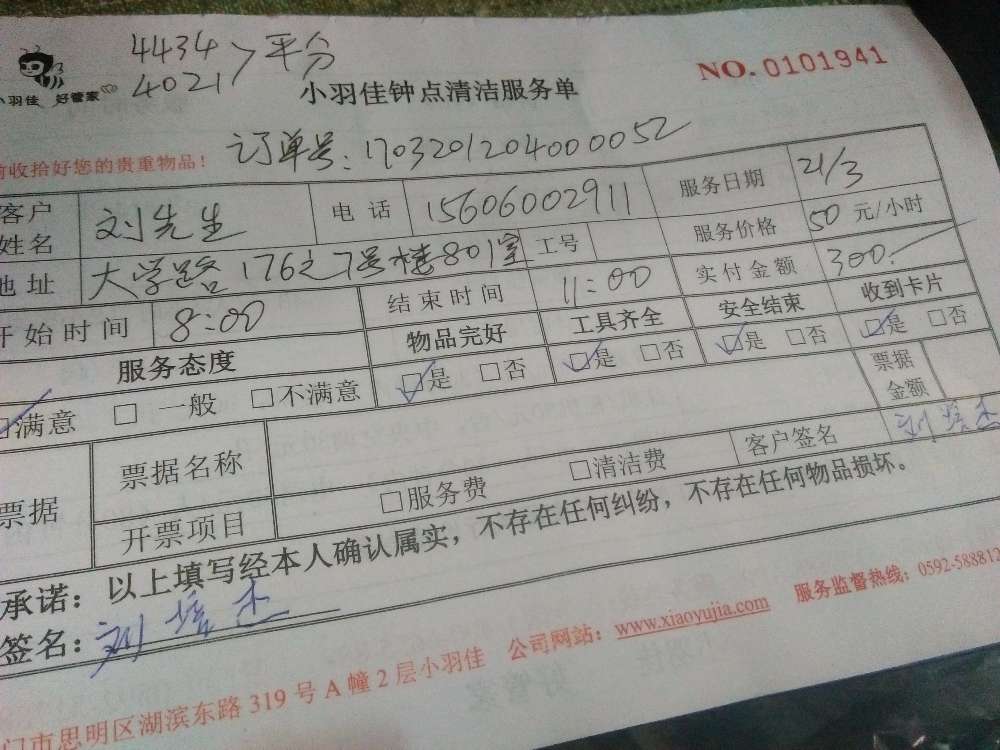 4434 > 平分
4021
小羽佳 好管家
小羽佳钟点清洁服务单
NO. 0101941
前收拾好您的贵重物品！ 订单号：17032012040000052
客户姓名 刘先生 电话 15606002911 服务日期 21/3
地址 大学路176之7号楼801室 工号 服务价格 50 元/小时
开始时间 8:00 结束时间 11:00 实付金额 300.
服务态度 物品完好 工具齐全 安全结束 收到卡片
□满意 □一般 □不满意 □是 □否 □是 □否 □是 □否 □是 □否
票据 票据名称 票据金额
开票项目 □服务费 □清洁费 客户签名 刘培杰
承诺：以上填写经本人确认属实，不存在任何纠纷，不存在任何物品损坏。
签名：刘培杰
门市思明区湖滨东路319号A幢2层小羽佳 公司网站：www.xiaoyujia.com 服务监督热线：0592-588812